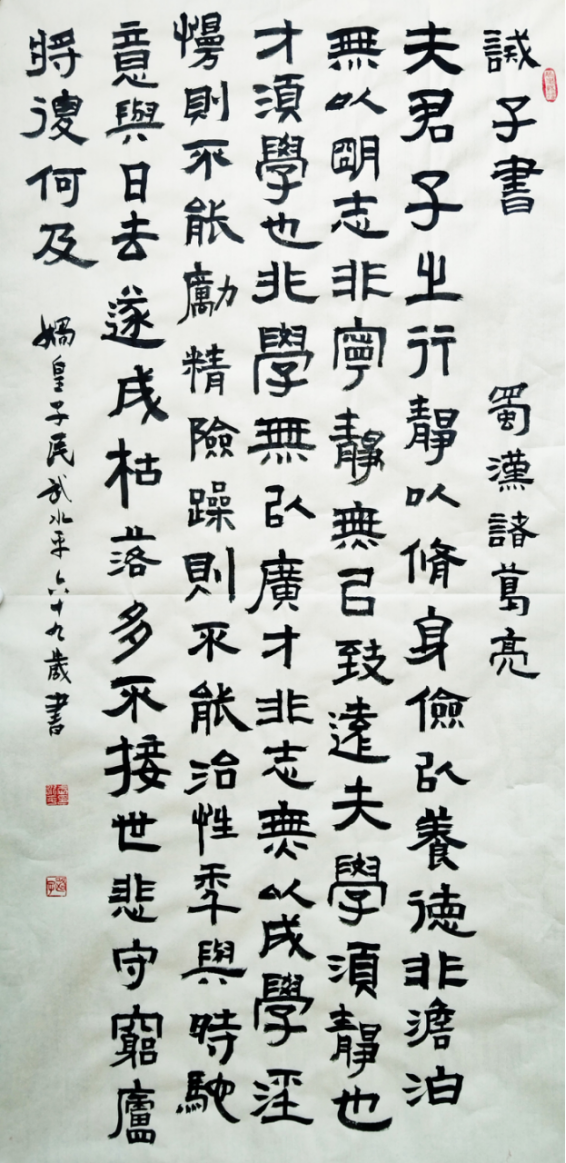 誡子書 蜀漢諸葛亮
夫君子之行靜以脩身儉以養德非澹泊
無以明志非寧靜無㠯致遠夫學須靜也
才須學也非學無以廣才非志無以成學淫
慢則不能勵精險躁則不能治性年與時馳
意與日去遂成枯落多不接世悲守窮廬
將復何及
媧皇子民武水平六十九歲書